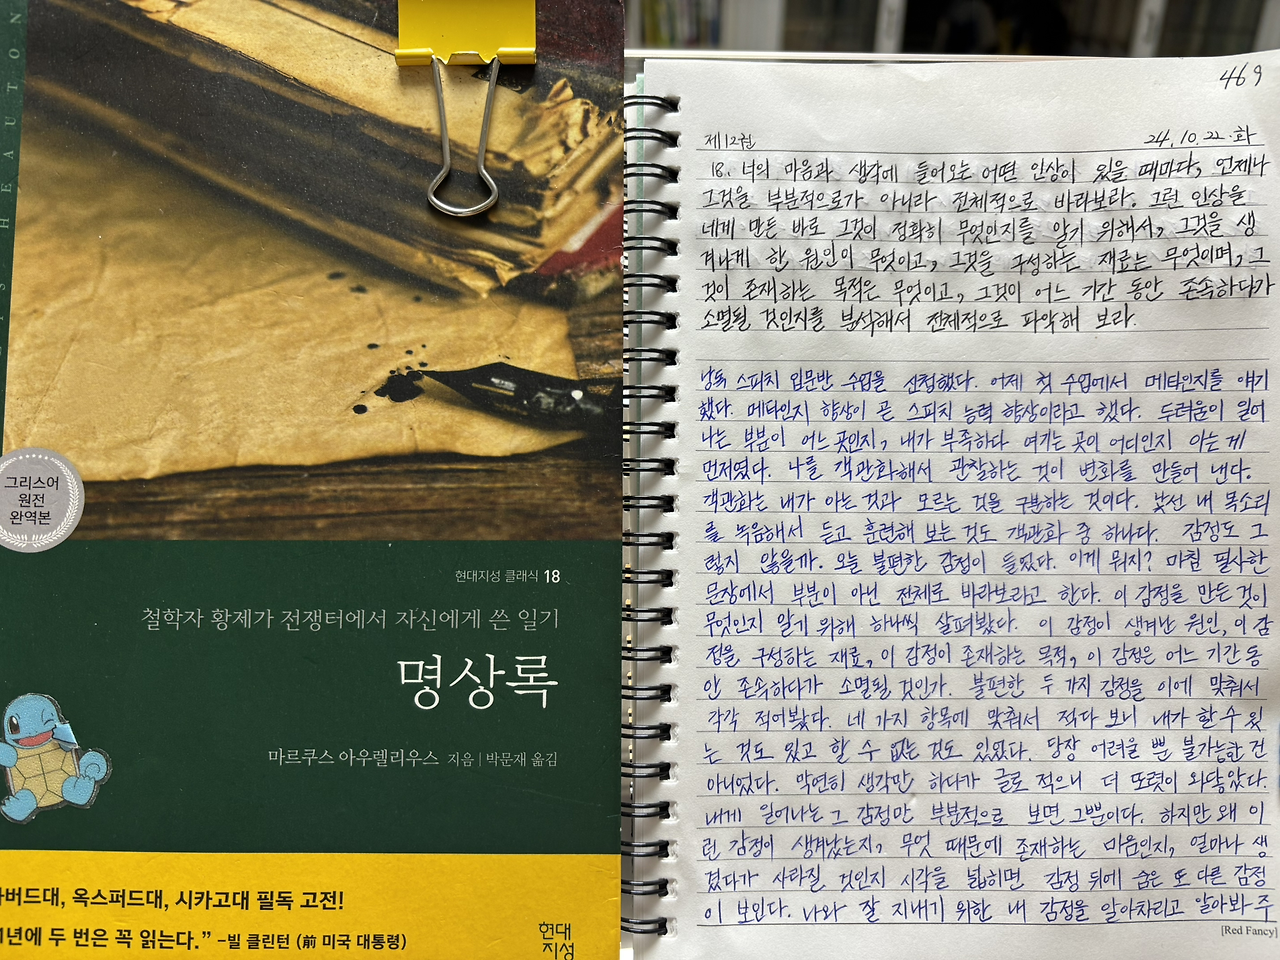 그리스어
원전
완역본
현대지성 클래식 18
철학자 황제가 전쟁터에서 자신에게 쓴 일기
명상록
마르쿠스 아우렐리우스 지음 | 박문재 옮김
하버드대, 옥스퍼드대, 시카고대 필독 고전!
1년에 두 번은 꼭 읽는다.” –빌 클린턴 (前 미국 대통령)
현대
지성
469
제12권 24. 10. 22. 화
18. 너의 마음과 생각에 들어오는 어떤 인상이 있을 때마다, 언제나
그것을 부분적으로가 아니라 전체적으로 바라보라. 그런 인상을
네게 만든 바로 그것이 정확히 무엇인지를 알기 위해서, 그것을 생
겨나게 한 원인이 무엇이고, 그것을 구성하는 재료는 무엇이며, 그
것이 존재하는 목적은 무엇이고, 그것이 어느 기간 동안 존속하다가
소멸될 것인지를 분석해서 전체적으로 파악해 보라.
낭독 스피치 입문반 수업을 신청했다. 어제 첫 수업에서 메타인지를 얘기
했다. 메타인지 향상이 곧 스피치 능력 향상이라고 했다. 두려움이 일어
나는 부분이 어느 곳인지, 내가 부족하다 여기는 곳이 어디인지 아는 게
먼저였다. 나를 객관화해서 관찰하는 것이 변화를 만들어 낸다.
객관화는 내가 아는 것과 모르는 것을 구분하는 것이다. 낯선 내 목소리
를 녹음해서 듣고 훈련해 보는 것도 객관화 중 하나다. 감정도 그
렇지 않을까. 오늘 불편한 감정이 들었다. 이게 뭐지? 마침 필사한
문장에서 부분이 아닌 전체로 바라보라고 한다. 이 감정을 만든 것이
무엇인지 알기 위해 하나씩 살펴봤다. 이 감정이 생겨난 원인, 이 감
정을 구성하는 재료, 이 감정이 존재하는 목적, 이 감정은 어느 기간 동
안 존속하다가 소멸될 것인가. 불편한 두 가지 감정을 이에 맞춰서
각각 적어봤다. 네 가지 항목에 맞춰서 적다 보니 내가 할 수 있
는 것도 있고 할 수 없는 것도 있었다. 당장 어려울 뿐 불가능한 건
아니었다. 막연히 생각만 하다가 글로 적으니 더 또렷이 와닿았다.
내게 일어나는 그 감정만 부분적으로 보면 그뿐이다. 하지만 왜 이
런 감정이 생겨났는지, 무엇 때문에 존재하는 마음인지, 얼마나 생
겼다가 사라질 것인지 시각을 넓히면 감정 뒤에 숨은 또 다른 감정
이 보인다. 나와 잘 지내기 위한 내 감정을 알아차리고 알아봐 주
[Red Fancy]